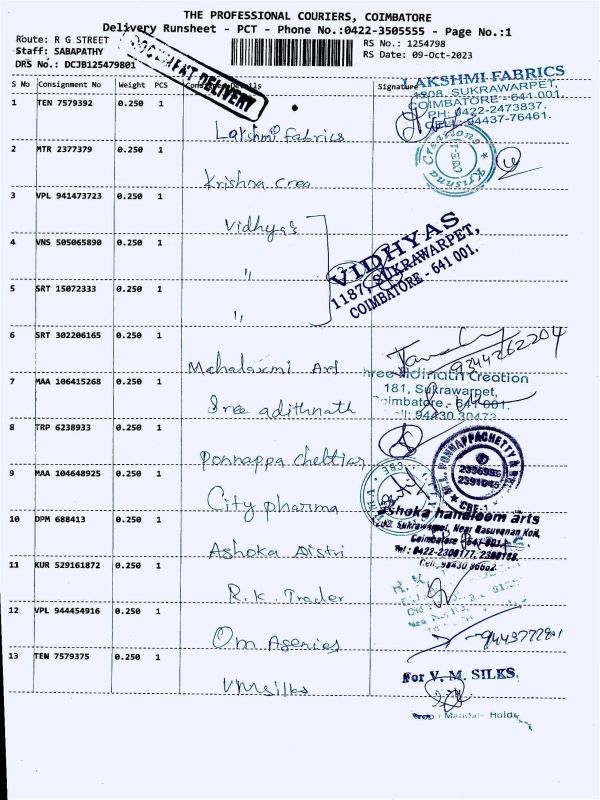 THE PROFESSIONAL COURIERS, COIMBATORE
Delivery Runsheet - PCT - Phone No.:0422-3505555 - Page No.:1
Route: R G STREET
RS No.: 1254798
Staff: SABAPATHY
RS Date: 09-Oct-2023
DRS No.: DCJB125479801
DOCUMENT DELIVERY
S No Consignment No Weight PCS Consignee Details Signature
LAKSHMI FABRICS
1208, SUKRAWARPET,
COIMBATORE - 641 001.
PH: 0422-2473837.
94437-76461.
1 TEN 7579392 0.250 1
Lakshmi fabrics
Krishna Creations
CBE-1
2 MTR 2377379 0.250 1
Krishna Crea
3 VPL 941473723 0.250 1
Vidhyas
VIDHYAS
1187, SUKRAWARPET,
COIMBATORE - 641 001.
4 VNS 505065890 0.250 1
"
5 SRT 15072333 0.250 1
"
6 SRT 302206165 0.250 1
Mahalaxmi Art
9344262204
7 MAA 106415268 0.250 1
Sree adithnath
hree Aidinath Creation
181, Sukrawarpet,
oimbatore - 641 001.
94430 30473
8 TRP 6238933 0.250 1
Ponnappa chettiar
9 MAA 104648925 0.250 1
City pharma
CBE-1
10 DPM 688413 0.250 1
Ashoka Distri
shoka handloom arts
Sukrawarpet, Near Rasuvanan Koil,
Coimbatore
Tel: 0422-2300177,
11 KUR 529161872 0.250 1
R.K. Trader
12 VPL 944454916 0.250 1
Om Agenies
13 TEN 7579375 0.250 1
VM silks
For V. M. SILKS